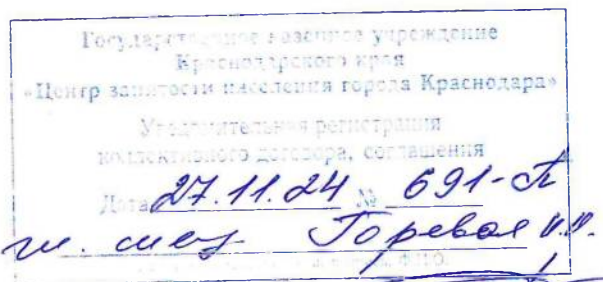 Государственное казенное учреждение
Краснодарского края
«Центр занятости населения города Краснодара»
Уведомительная регистрация
коллективного договора, соглашения
Дата 27.11.24 № 691-П
гл. спец Горевая